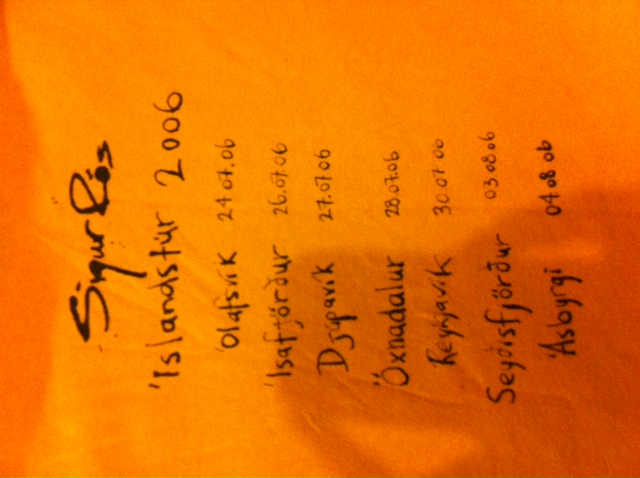 Sigur Rós
Íslandstúr 2006
Ólafsvík 24.07.06
Ísafjörður 26.07.06
Djúpavík 27.07.06
Öxnadalur 28.07.06
Reykjavík 30.07.06
Seyðisfjörður 03.08.06
Ásbyrgi 04.08.06